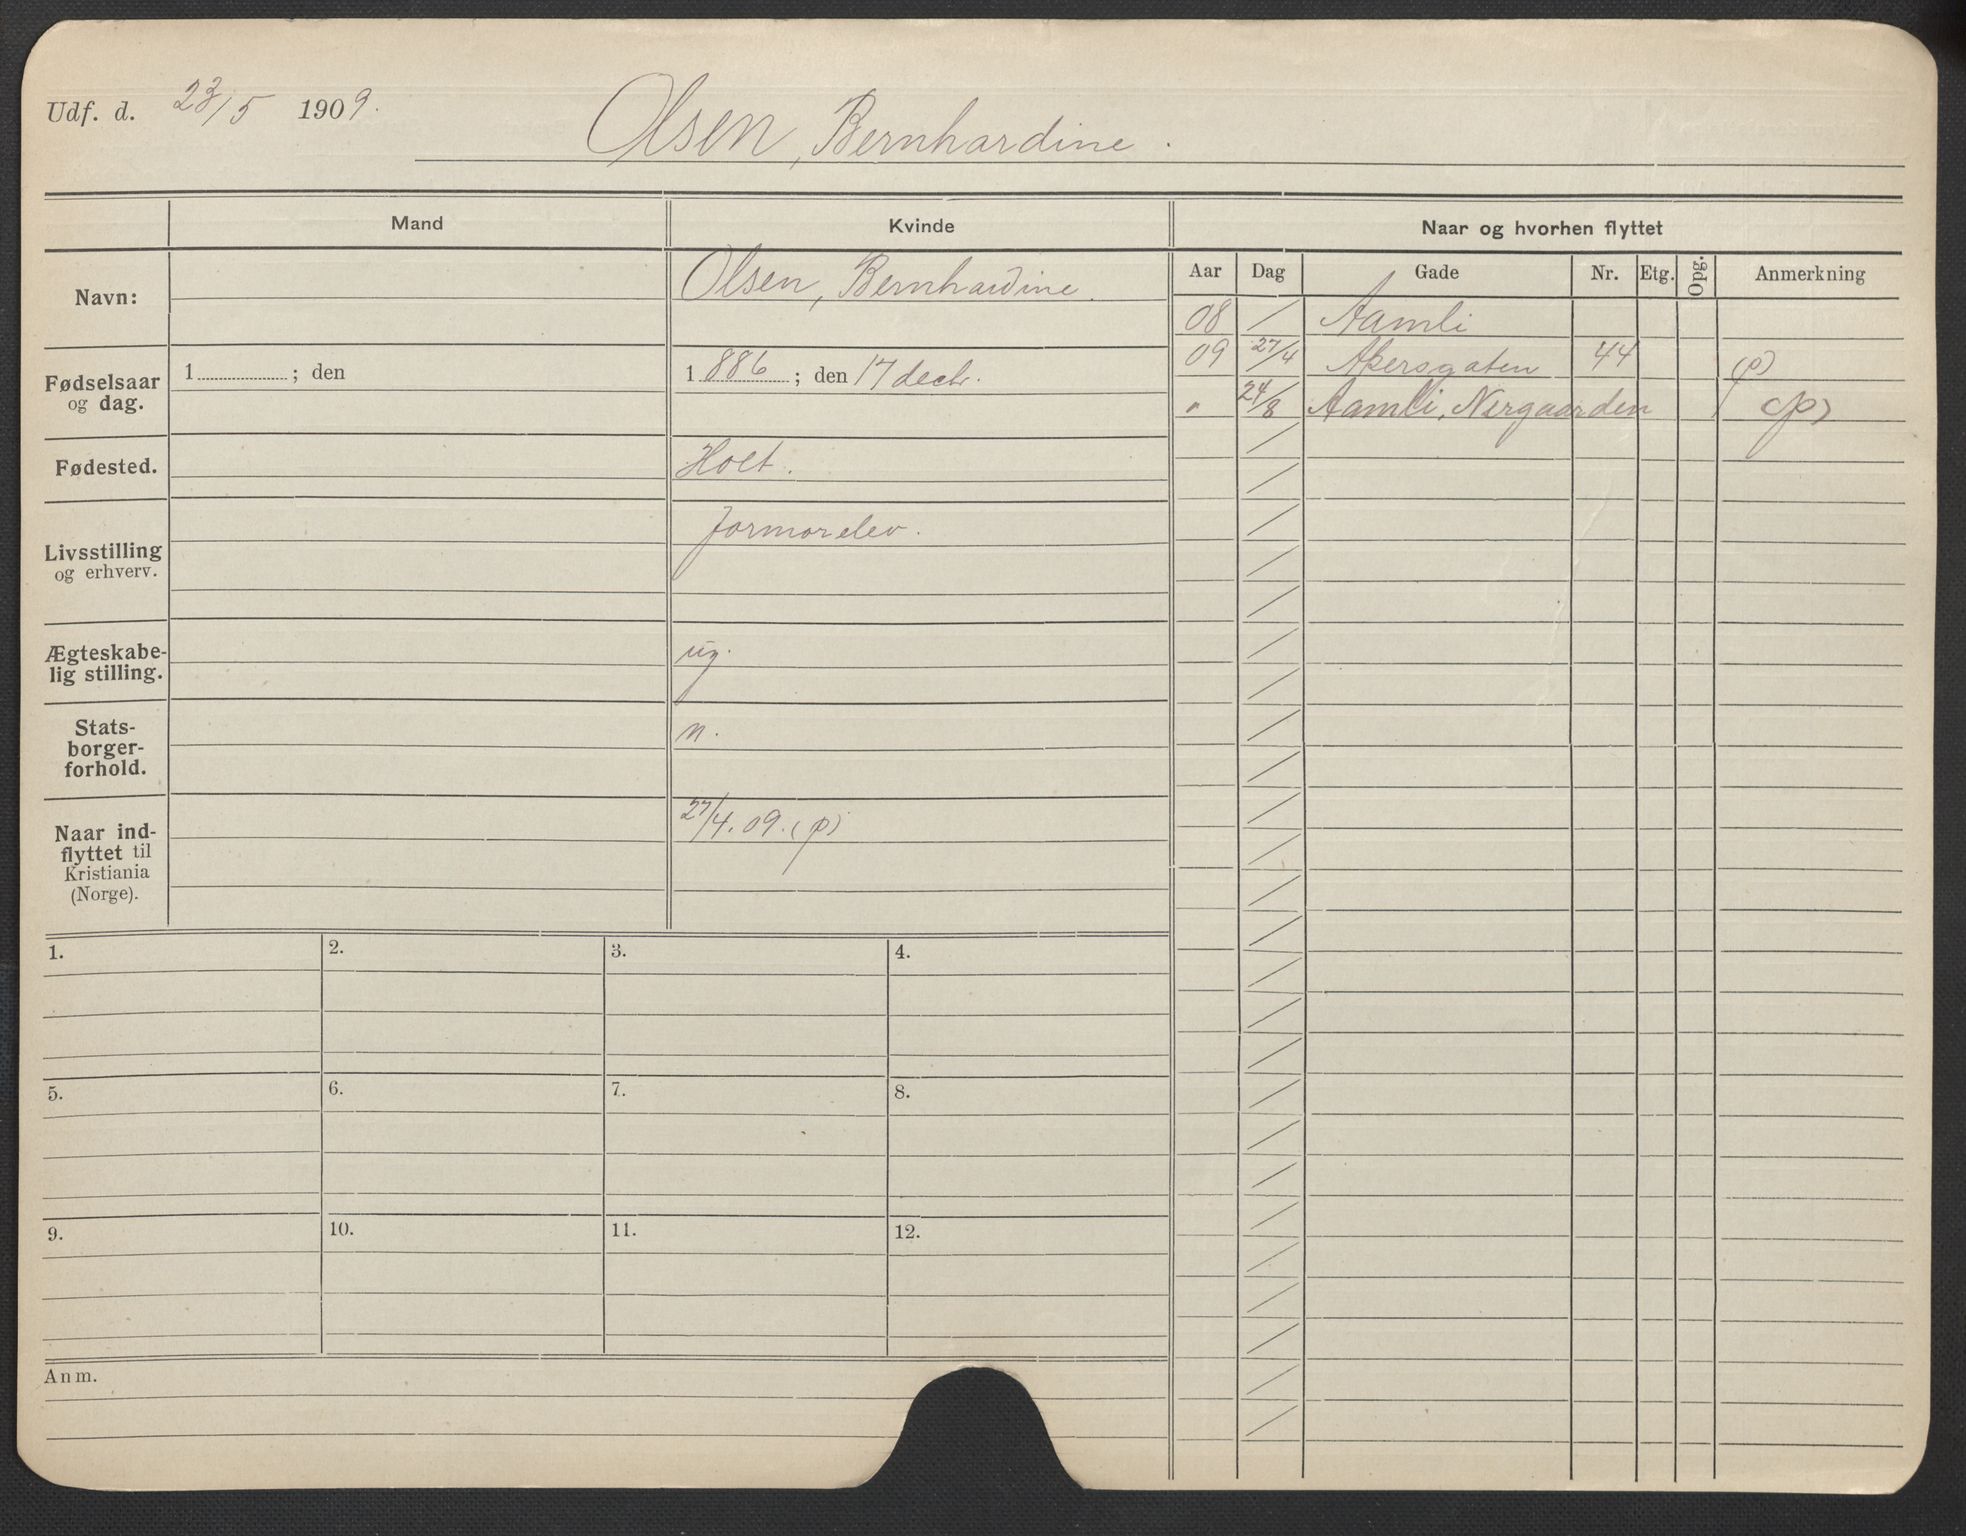 Udf. d. 23/5 1909.
Olsen, Bernhardine.
Mand
Kvinde
Naar og hvorhen flyttet
Navn:
Olsen, Bernhardine.
Aar Dag Gade Nr. Etg. Opg. Anmerkning
08 / Aamli
09 27/4 Akersgaten 44 (p)
" 24/8 Aamli, Nergaarden (p)
Fødselsaar
og dag.
1 ; den
1886; den 17 decbr.
Fødested.
Holt.
Livsstilling
og erhverv.
Jormorelev.
Ægteskabe-
lig stilling.
ug.
Stats-
borger-
forhold.
n.
Naar ind-
flyttet til
Kristiania
(Norge).
27/4. 09. (p)
1. 2. 3. 4.
5. 6. 7. 8.
9. 10. 11. 12.
Anm.